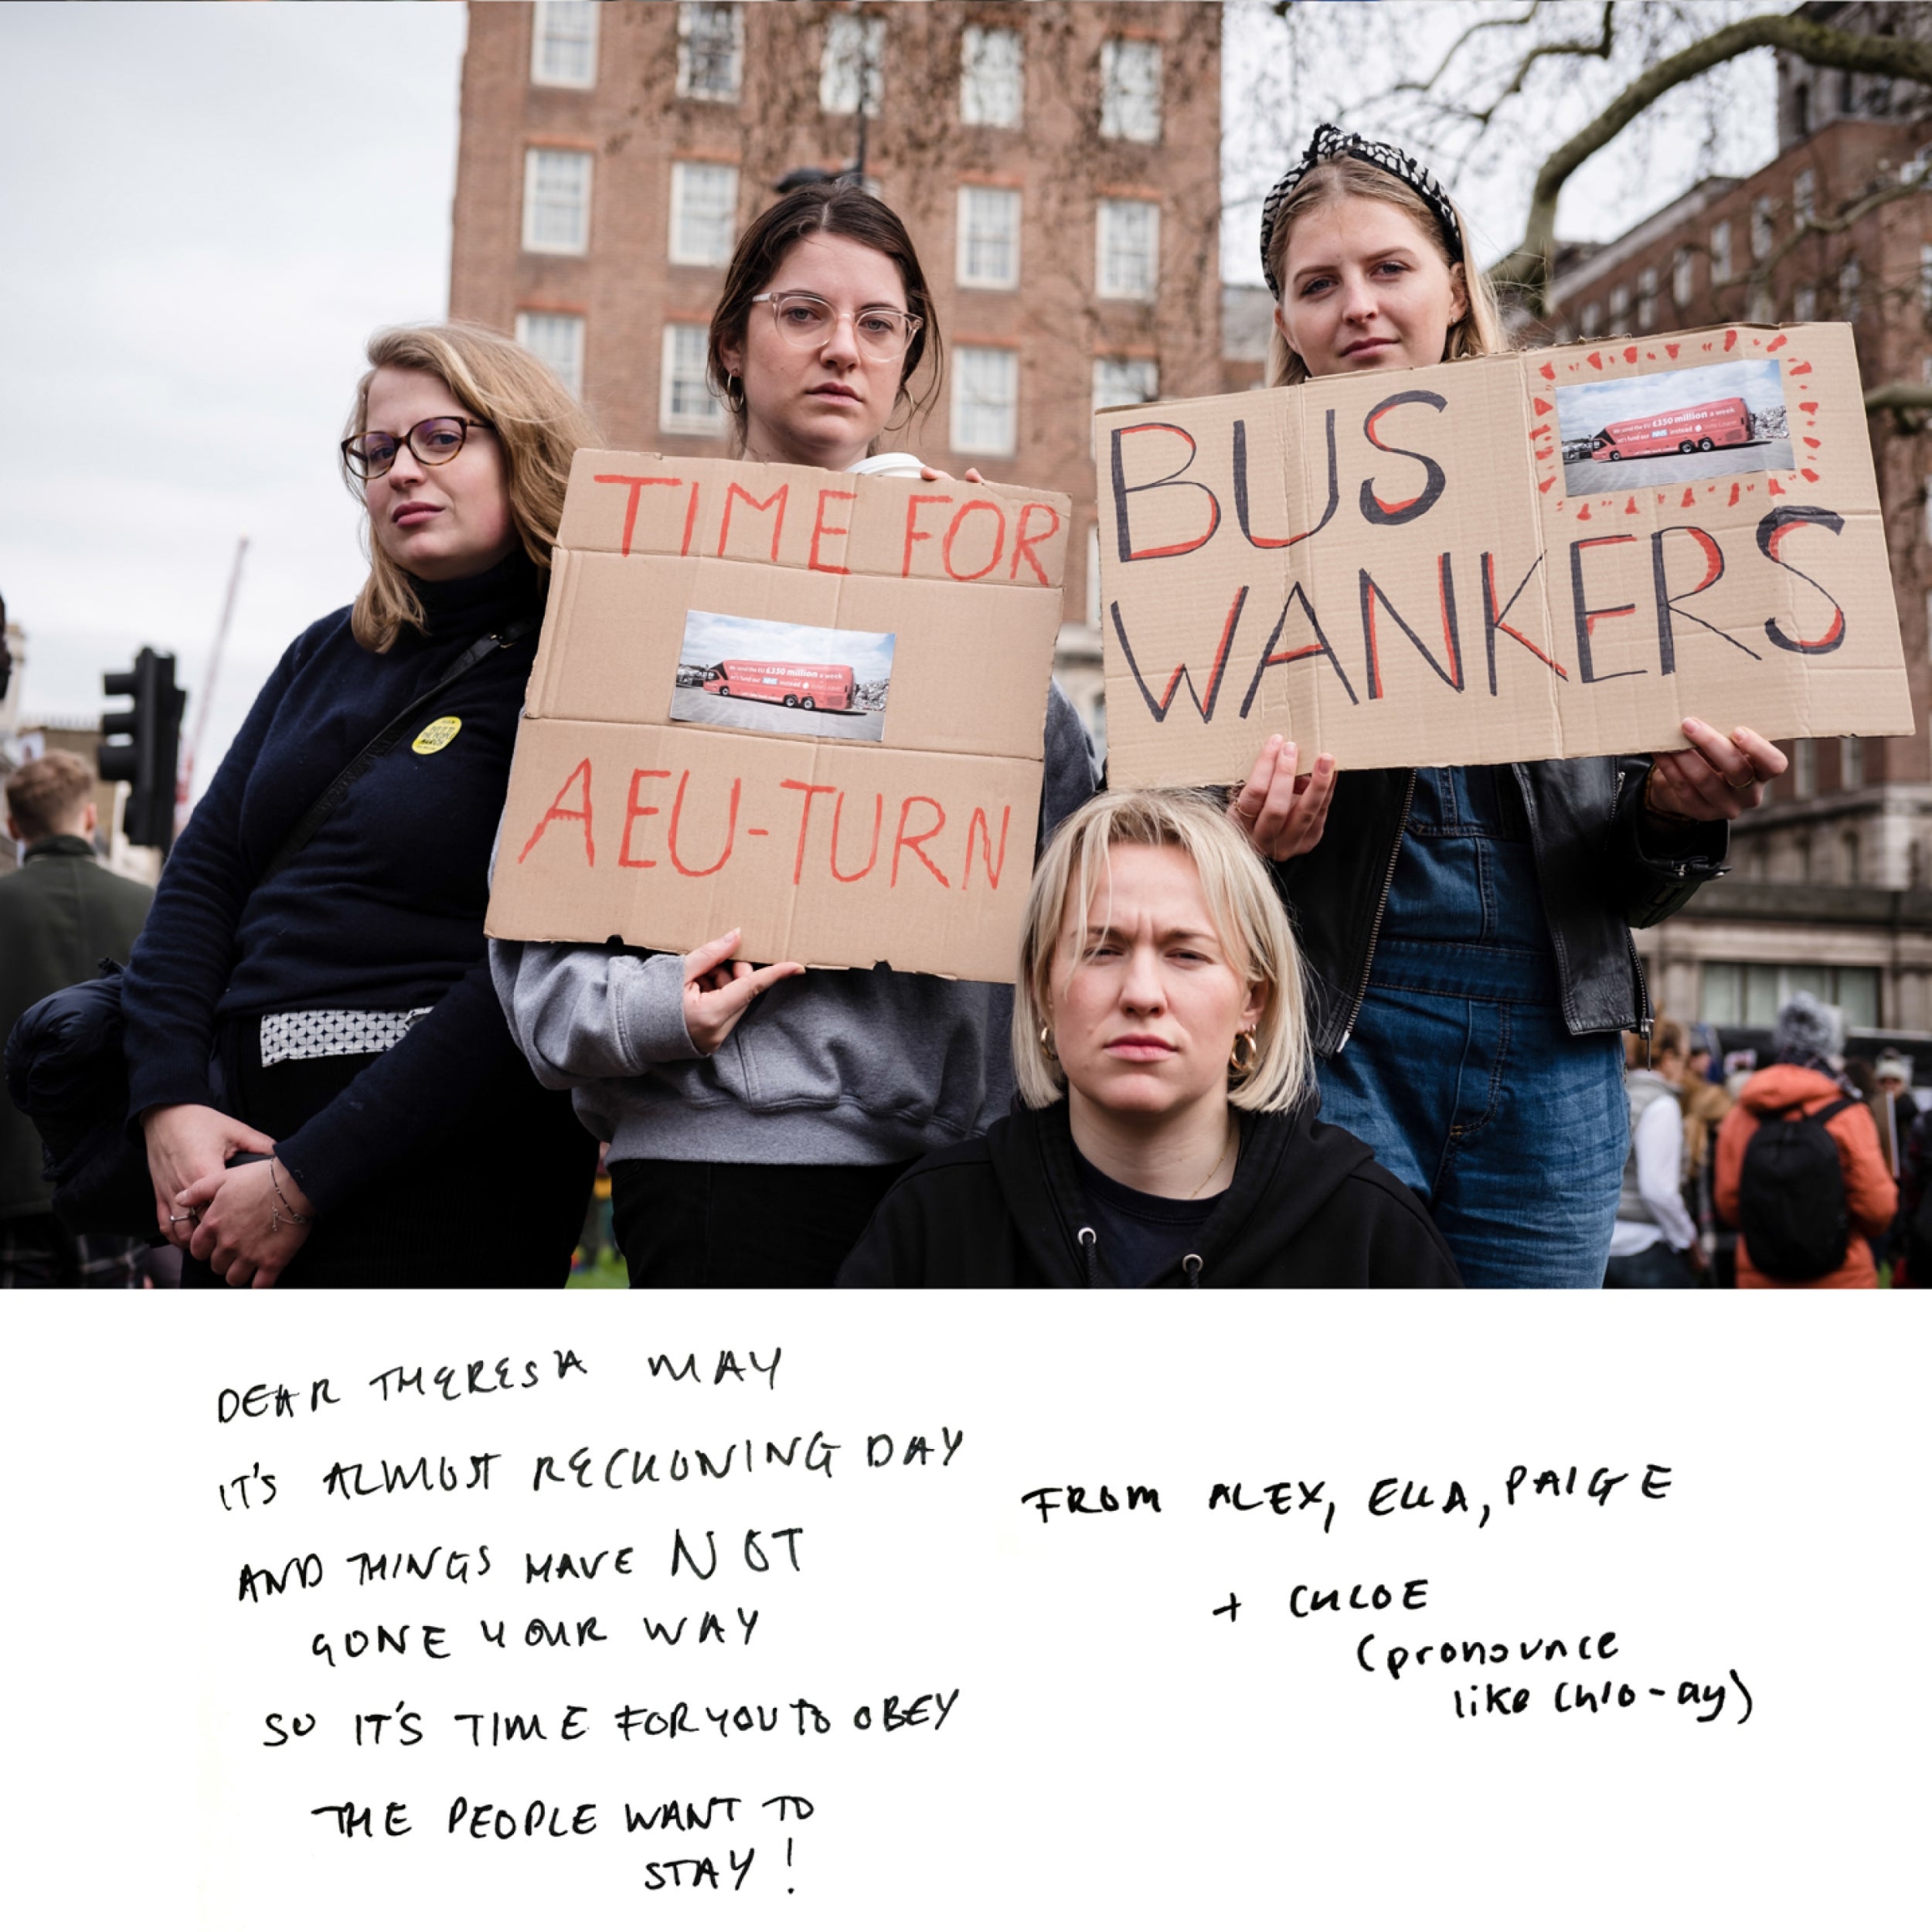 TIME FOR
We send the EU £350 million a week
let's fund our NHS instead Vote Leave
A EU-TURN
BUS
We send the EU £350 million a week
let's fund our NHS instead Vote Leave
WANKERS
DEAR THERESA MAY
IT'S ALMOST RECKONING DAY
AND THINGS HAVE NOT
GONE YOUR WAY
SO IT'S TIME FOR YOU TO OBEY
THE PEOPLE WANT TO
STAY!
FROM ALEX, ELLA, PAIGE
+ CHLOE
(pronounce
like Chlo-ay)